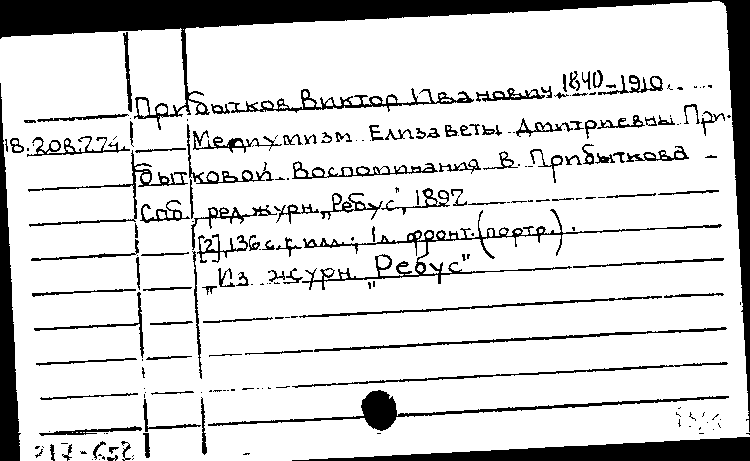 Прибытков, Виктор Иванович, 1840-1910.
18.208.774. Медиумизм Елизаветы Дмитриевны При-
бытковой. Воспоминания В. Прибыткова –
Спб., ред. журн. „Ребус", 1897
[2], 136 с. с илл.; 1 л. фронт. (портр.).
„Из журн. „Ребус"
217-652